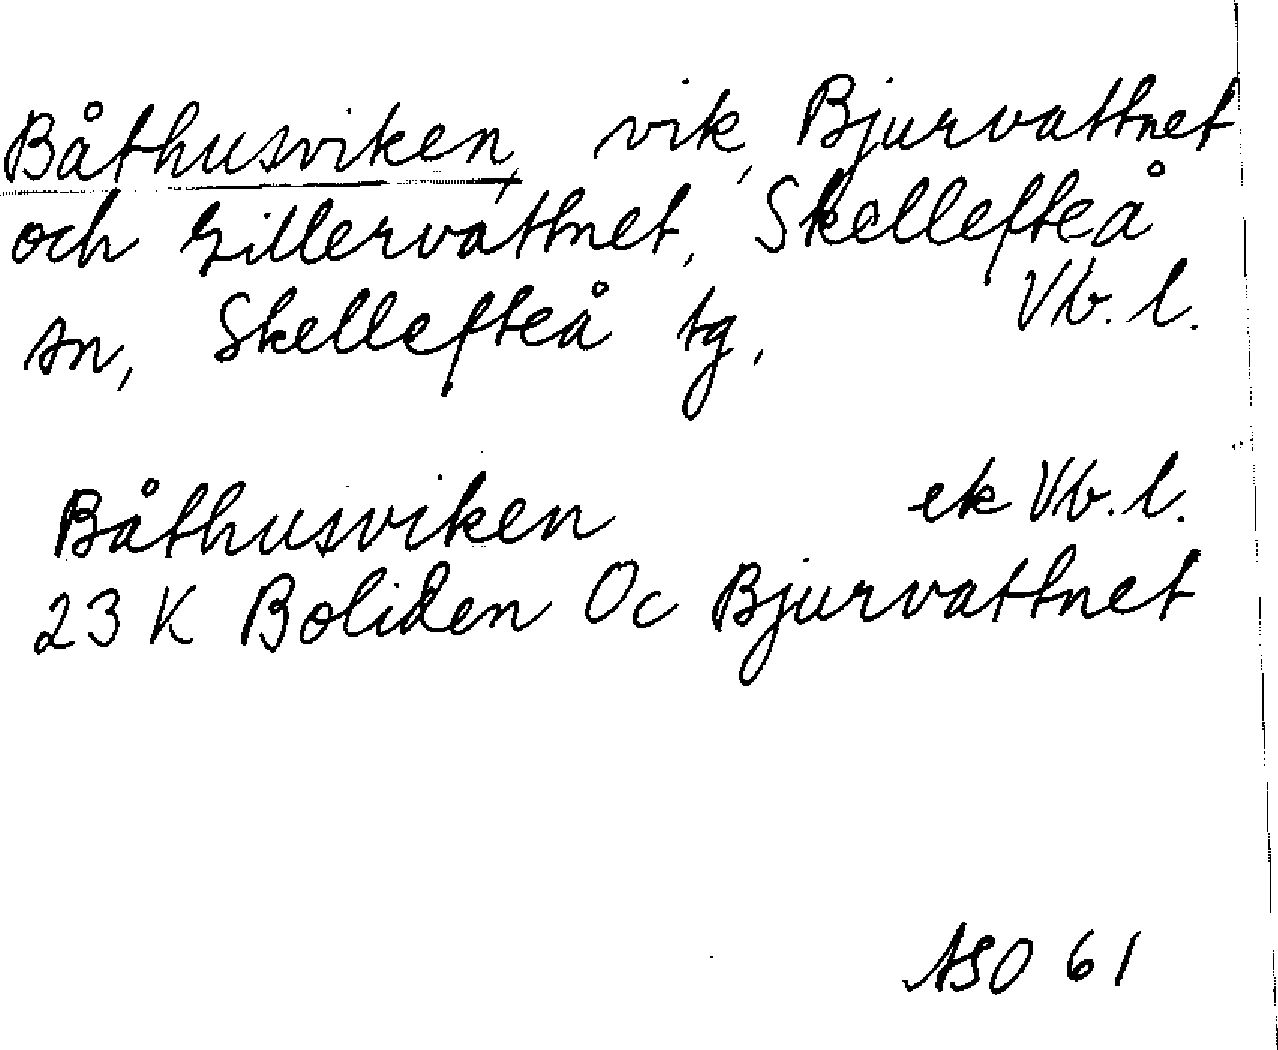 Båthusviken, vik, Bjurvattnet
och Gillervattnet, Skellefteå
sn, Skellefteå tg, Vb. l.
Båthusviken ek Vb. l.
23 K Boliden Oc Bjurvattnet
ASO 61